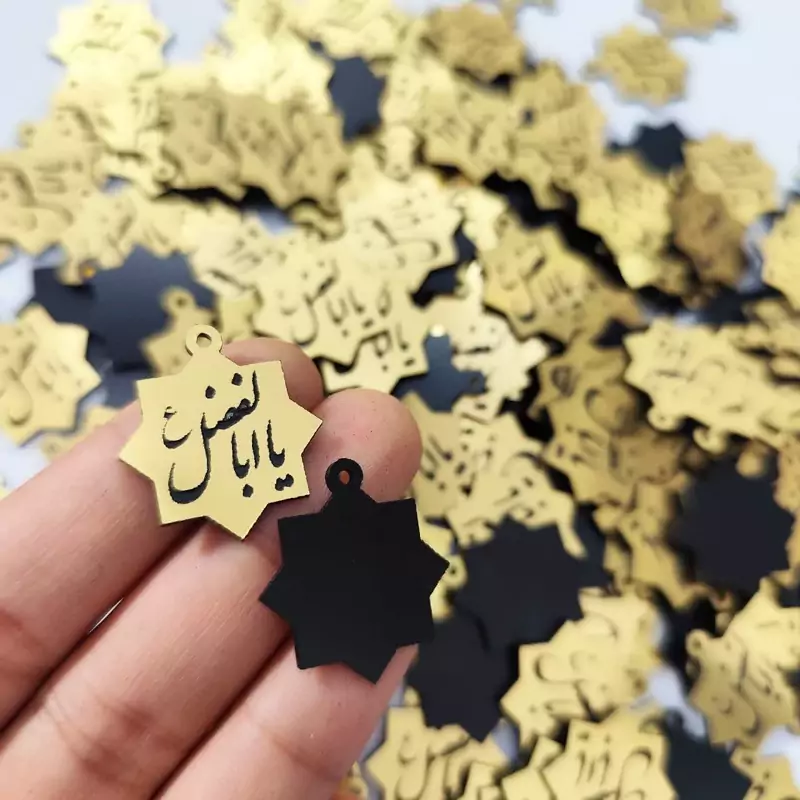 یا ابالفضل ع